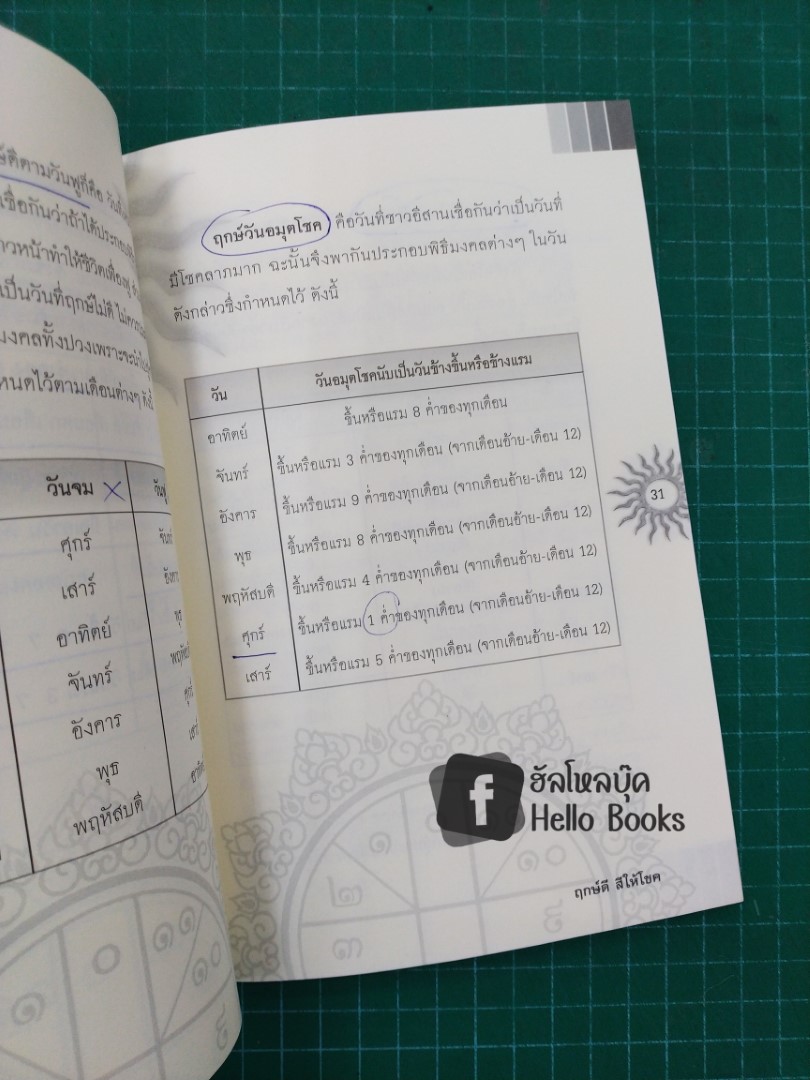 ตามวันฟูก็คือ
เชื่อกันว่าถ้าได้ประกอบพิธี
าวหน้าทำให้ชีวิตเฟื่องฟู
เป็นวันที่ฤกษ์ไม่ดี ไม่ควร
มงคลทั้งปวงเพราะจะนำ
หนดไว้ตามเดือนต่างๆ ดังนี้
วันจม
ศุกร์
เสาร์
อาทิตย์
จันทร์
อังคาร
พุธ
พฤหัสบดี
ฤกษ์วันอมุตโชค คือวันที่ชาวอีสานเชื่อกันว่าเป็นวันที่
มีโชคลาภมาก ฉะนั้นจึงพากันประกอบพิธีมงคลต่างๆ ในวัน
ดังกล่าวซึ่งกำหนดไว้ ดังนี้
วัน วันอมุตโชคนับเป็นวันข้างขึ้นหรือข้างแรม
อาทิตย์ ขึ้นหรือแรม 8 ค่ำของทุกเดือน
จันทร์ ขึ้นหรือแรม 3 ค่ำของทุกเดือน (จากเดือนอ้าย-เดือน 12)
อังคาร ขึ้นหรือแรม 9 ค่ำของทุกเดือน (จากเดือนอ้าย-เดือน 12)
พุธ ขึ้นหรือแรม 8 ค่ำของทุกเดือน (จากเดือนอ้าย-เดือน 12)
พฤหัสบดี ขึ้นหรือแรม 4 ค่ำของทุกเดือน (จากเดือนอ้าย-เดือน 12)
ศุกร์ ขึ้นหรือแรม 1 ค่ำของทุกเดือน (จากเดือนอ้าย-เดือน 12)
เสาร์ ขึ้นหรือแรม 5 ค่ำของทุกเดือน (จากเดือนอ้าย-เดือน 12)
31
f ฮัลโหลบุ๊ค
Hello Books
๒
๓
๙
ฤกษ์ดี สีให้โชค
๑
๐
๑๑
๑๐
๙